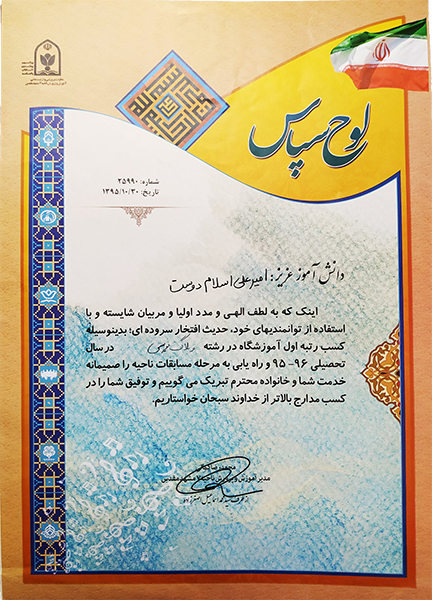 لوح سپاس
شماره: ۲۵۹۹۰
تاریخ: ۱۳۹۵/۱۰/۳۰
دانش آموز عزیز: امیرعلی اسلام دوست
اینک که به لطف الهی و مدد اولیا و مربیان شایسته و با
استفاده از توانمندیهای خود، حدیث افتخار سروده ای؛ بدینوسیله
کسب رتبه اول آموزشگاه در رشته در سال
تحصیلی ۹۶-۹۵ و راه یابی به مرحله مسابقات ناحیه را صمیمانه
خدمت شما و خانواده محترم تبریک می گوییم و توفیق شما را در
کسب مدارج بالاتر از خداوند سبحان خواستاریم.
مدیر آموزش و پرورش ناحیه ۷ مشهد مقدس
از طرف